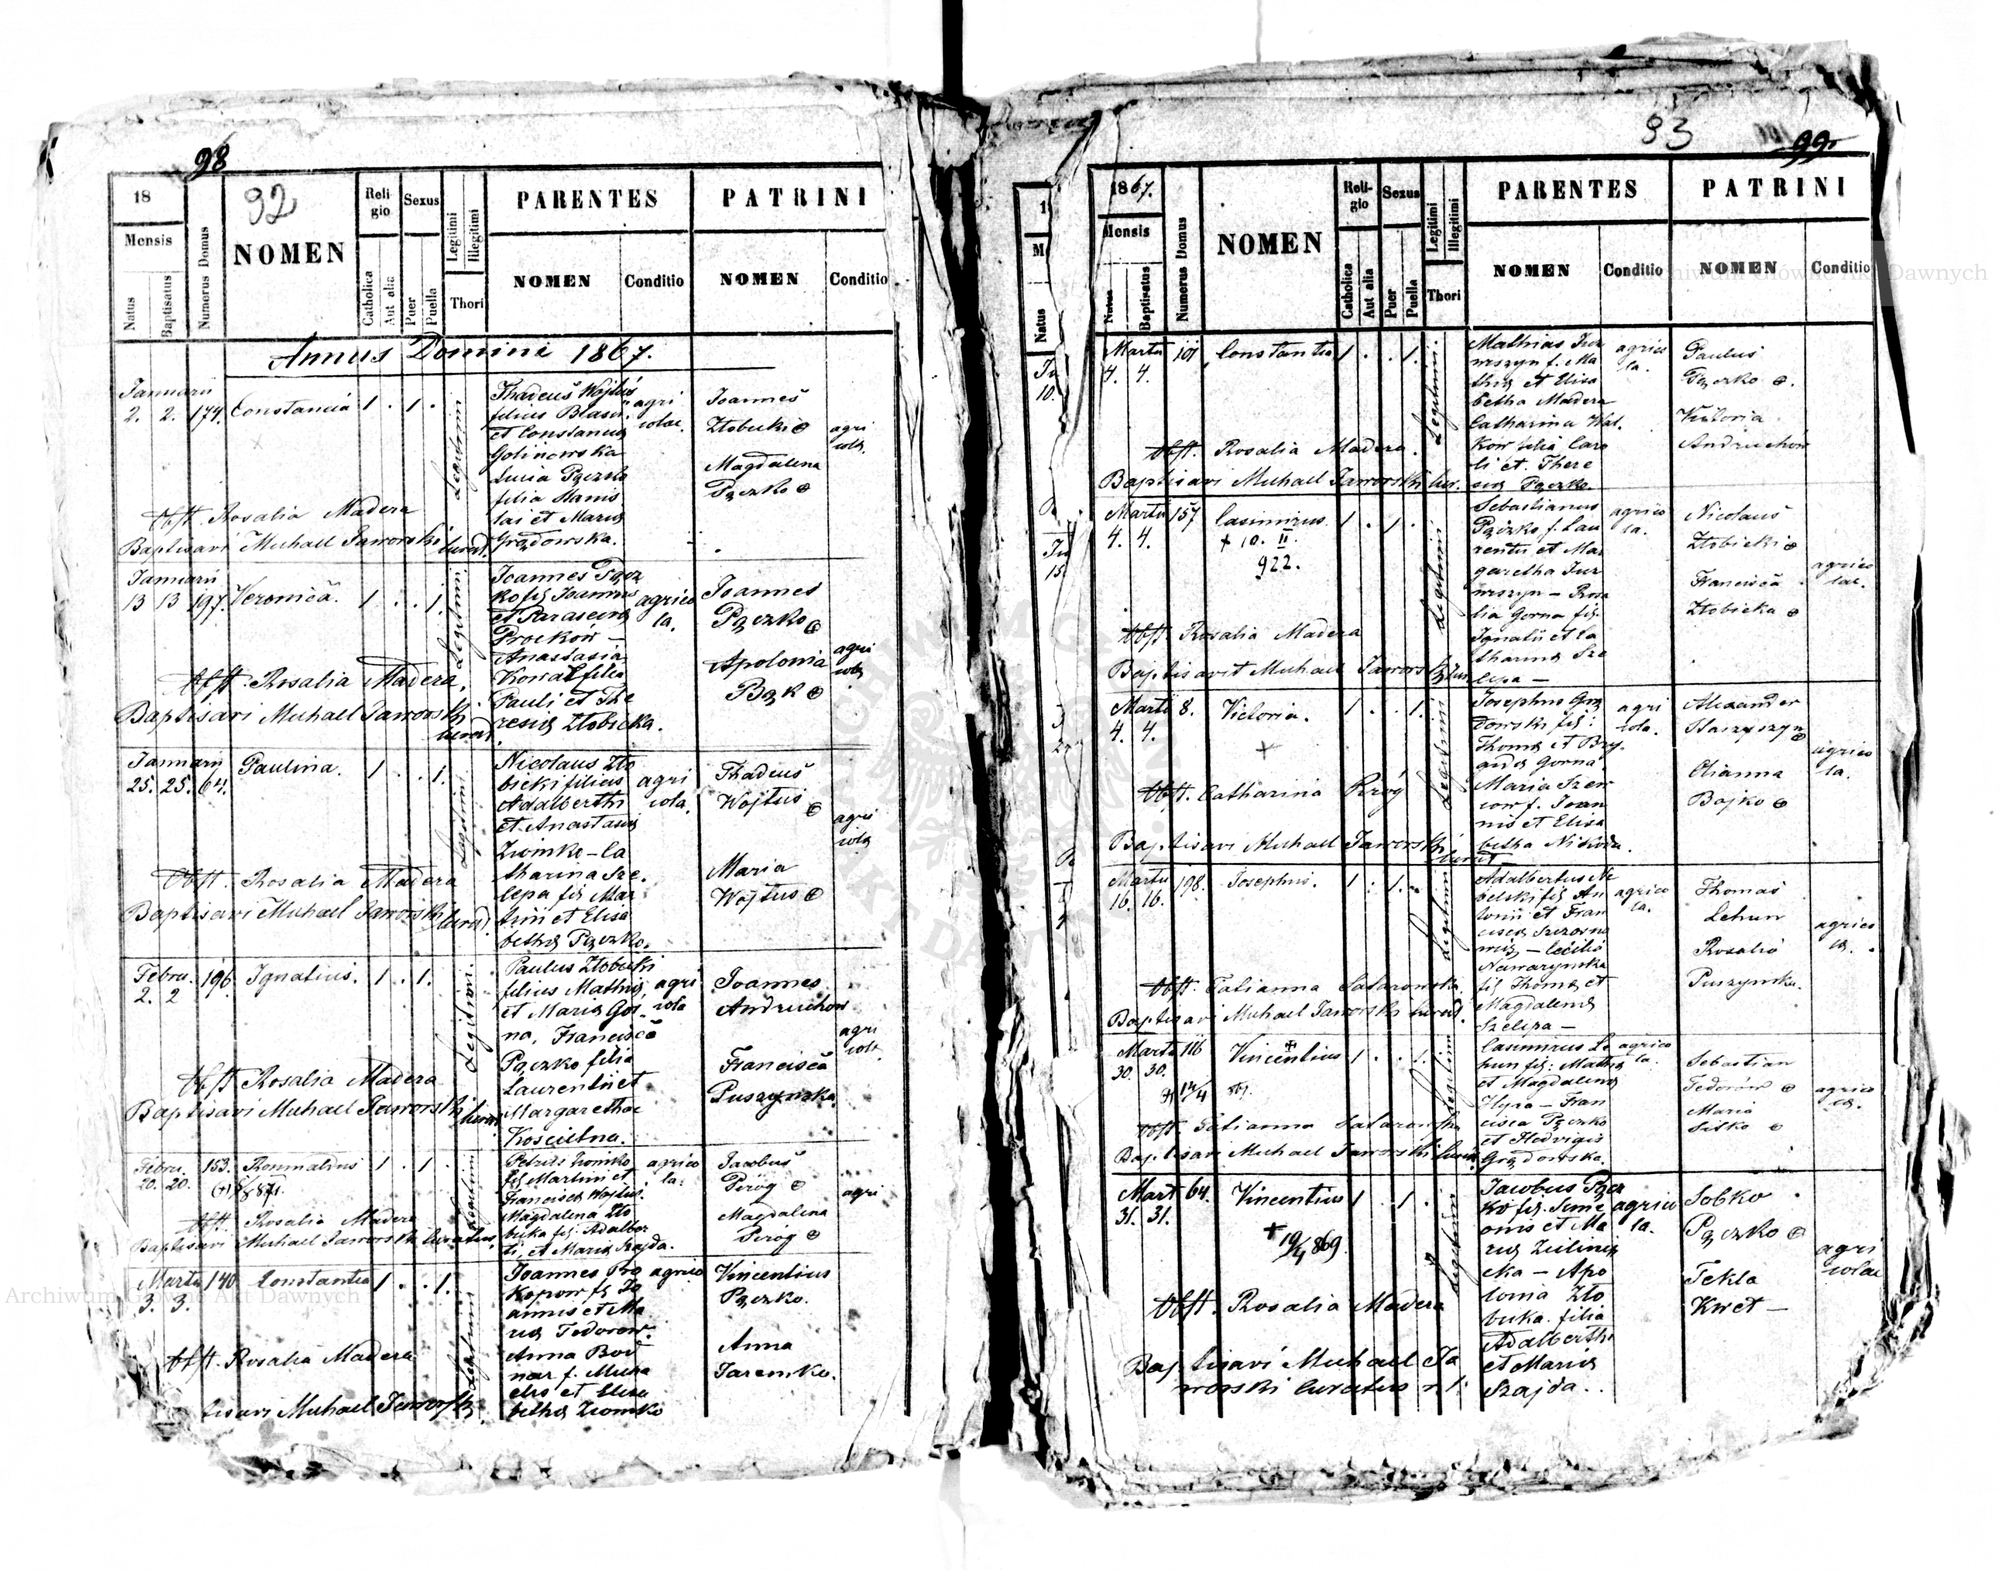 98
92
18
Mensis
Natus
Baptisatus
Numerus Domus
NOMEN
Religio
Catholica
Aut alia
Sexus
Puer
Puella
Legitimi
Illegitimi
Thori
PARENTES
NOMEN
Conditio
PATRINI
NOMEN
Conditio
Annus Domini 1867.
Januarii
2. 2. 174. Constancia 1 . 1 .
Legitimi
Thadeus Wojtus
filius Blasii
et Constancia
Golinowska
Lucia Pączko
filia Stanis
lai et Maria
Grądowska.
agri
colae
Joannes
Złobicki
Magdalena
Pączko
agri
colae
Obst. Rosalia Madera
Baptisavi Michael Jaworski curat.
Januarii
13 13 197. Veronica. 1 . . 1.
Legitimi
Joannes Pącz
ko fil. Joannis
et Parasceva
Prockow –
Anastasia
Kowal filia
Pauli et The
resia Złobicka.
agrico
la.
Joannes
Pączko
Apolonia
Bąk
agri
colae
Obst. Rosalia Madera.
Baptisavi Michael Jaworski
curat.
Januarii
25. 25. 64. Paulina. 1 . . 1.
Legitimi
Nicolaus Zło
bicki filius
Adalberthi
et Anastasia
Ziomko – Ca
tharina Sze
lepa fil. Mar
tini et Elisa
betha Pączko.
agri
cola
Thadeus
Wojtus
Maria
Wojtus
agri
cola
Obst. Rosalia Madera
Baptisavi Michael Jaworski curat.
Febru.
2. 2 196. Ignatius. 1 . 1.
Legitimi
Paulus Złobicki
filius Mathia
et Maria Gór
na, Francisca
Pączko filia
Laurentii et
Margaretha
Koscielna.
agri
cola
Joannes
Andruchow
Francisca
Puszynska
agri
cola
Obst. Rosalia Madera
Baptisavi Michael Jaworski curat
Febru.
20. 20. 153. Romualdus 1 . 1
Legitimi
Petrus Ziomko
fil. Martini et
Francisca Wojtus.
Magdalena Zło
bicka fil. Adalber
ti, et Maria Szajda.
agrico
la.
Jacobus
Piróg
Magdalena
Piróg
agri
Obst. Rosalia Madera
Baptisavi Michael Jaworski Curatus.
Martii 140 Constantia 1 . . 1.
3. 3.
Legitimi
Joannes Pro
kopow fil. Jo
annis et Ma
ria Fedorow.
Anna Bod
nar f. Micha
elis et Elisa
betha Ziomko
agrico
Vincentius
Pączko.
Anna
Jaremko.
Obst. Rosalia Madera
tisavi Michael Jaworski
93
99
1867.
Mensis
Natus
Baptisatus
Numerus Domus
NOMEN
Religio
Catholica
Aut alia
Sexus
Puer
Puella
Legitimi
Illegitimi
Thori
PARENTES
NOMEN
Conditio
PATRINI
NOMEN
Conditio
Martii 101 Constantia 1 . . 1.
4. 4.
Legitimi.
Mathias Jur
wszyn f. Ma
thia et Elisa
betha Madera
Catharina Wal
kow filia Caro
li et There
sia Pączko.
agrico
la.
Paulus
Pączko
Victoria
Andruchów
Obst. Rosalia Madera.
Baptisavi Michael Jaworski Cur.
Martii 157 Casimirus. 1 . 1 .
4. 4.
+ 10. II.
922.
Legitimi
Sebastianus
Pączko f. Lau
rentii et Mar
garetha Jur
wszyn – Rosa
lia Gorna fil.
Ignatii et Ca
tharina Sze
lepa –
agrico
la.
Nicolaus
Złobicki
Francisca
Złobicka
agrico
lae.
Obst. Rosalia Madera
Baptisavit Michael Jaworski Cur
Martii 8. Victoria. 1 . . 1.
4. 4.
Legitimi
Josephus Grą
dowski fil:
Thoma et Bry
gida Gorna
Maria Szew
cow f. Joan
nis et Elisa
betha Nikoda.
agri
cola.
Alexander
Haszyszyn
Olianna
Bojko
agrico
la.
Obst. Catharina Piróg
Baptisavi Michael Jaworski
curat
Martii 198. Josephus. 1 . 1 .
16. 16.
Legitimi
Adalbertus
bielski fil. An
tonii et Fran
cisca
Cecilia
Nawarynska
fil. Thoma et
Magdalena
Szelepa –
agrico
la.
Thomas
Lehun
Rosalia
Puszynska.
agrico
la.
Obst. Tatianna Sataronska
Baptisavi Michael Jaworski curat.
Martii 116 Vincentius 1 . . 1.
30. 30.
17/4 867.
Legitimi
Casimirus Le
hun fil: Mathia
et Magdalena
Hypa – Fran
cisca Pączko
et Hedvigis
Grądowska.
agrico
la.
Sebastian
Fedorów
Maria
Sitko
agrico
la.
Obst. Tatianna Sataronska
Baptisavi Michael Jaworski Curat
Mart 64. Vincentius 1 . 1 .
31. 31.
+ 19/4 869.
Legitimi
Jacobus Pącz
ko fil. Sime
onis et Ma
ria Zielinis
cka – Apo
lonia Zło
bicka. filia
Adalberthi
et Maria
Szajda. .
agrico
la.
Sobko
Pączko
Tekla
Kwet –
agri
colae
Obst. Rosalia Madera
Baptisavi Michael Ja
worski Curatus r. l:
Archiwum Główne Akt Dawnych
Archiwum Główne Akt Dawnych